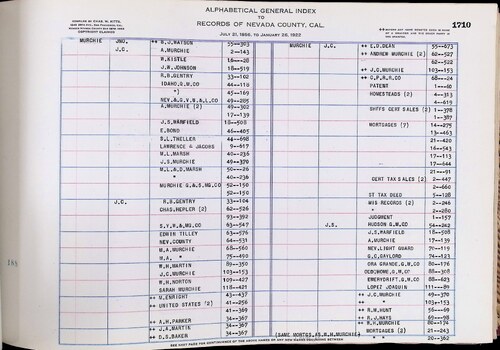 ALPHABETICAL GENERAL INDEX
TO
RECORDS OF NEVADA COUNTY, CAL.
JULY 21, 1856, TO JANUARY 28, 1922
COPYRIGHT CLAIMED
1710
MURCHIE JNO. ++ B.J.WATSON 55--303 MURCHIE J.C. ++ E.D.DEAN 55--673
J.C. ++ A.MURCHIE 2--143 ++ ANDREW MURCHIE (2) 62--527
62--522
W.KISTLE 16--28 ++ J.C.MURCHIE 103--153
J.W.JOHNSON 18--519 ++ C.P.R.R.CO 68--24
R.B.GENTRY 33--102 PATENT 1--60
IDAHO.G.M.CO 44--118 HOMESTEADS (2) 4--313
") 45--169 4--619
NEV.&G.V.W.&L.CO 49--205 SHFFS CERT SALES (2) 1--378
A.MURCHIE (2) 49--302 1--387
17--139 MORTGAGES (7) 14--275
J.S.MARFIELD 18--508 13--463
E.BOND 46--405 21--420
B.L.THELLER 44--698 16--543
LAWRENCE & JACOBS 9--617 17--113
W.L.MARSH 40--236 17--644
J.S.MURCHIE 49--370 21--91
W.L.&D.MARSH 50--26 CERT TAX SALES (2) 2--447
") 40--236 2--660
MURCHIE G.&S.MG.CO 52--150 ST TAX DEED 5--128
52--150 MIS RECORDS (2) 2--246
J.C. R.B.GENTRY 33--104 " 2--280
CHAS.HEPLER (2) 62--526 JUDGMENT 1--157
93--392 J.S. HUDSON G.M.CO 54--242
S.Y.W.&MG.CO 93--547 J.S.MARFIELD 18--508
EDWIN TILLEY 63--576 A.MURCHIE 17--139
NEV.COUNTY 64--531 NEV.LIGHT GUARD 70--119
M.A.MURCHIE 68--560 G.C.GAYLORD 74--123
M.A. ") 75--490 ORA GRANDE.G.M.CO 88--176
W.H.MARTIN 89--350
J.C.MURCHIE 103--153 EMERYDRIFT.G.M.CO 88--623
W.H.NORTON 109--427 LOPEZ JOAQUIN 111--89
SARAH MURCHIE 118--421 ++ J.C.MURCHIE 49--370
++ W.ENRIGHT 43--437 ++ " 103--153
++ UNITED STATES (2) 41--256 ++ R.M.HUNT 56--69
41--369 ++ R.J.HAYS 69--98
++ A.H.PARKER 34--367 ++ R.H.MURCHIE 86--174
++ J.A.MARTIN 34--367 MORTGAGES (2) 21--243
++ D.S.BAKER 34--367 (SAME MORTGS.AS R.H.MURCHIE) " 20--362
188